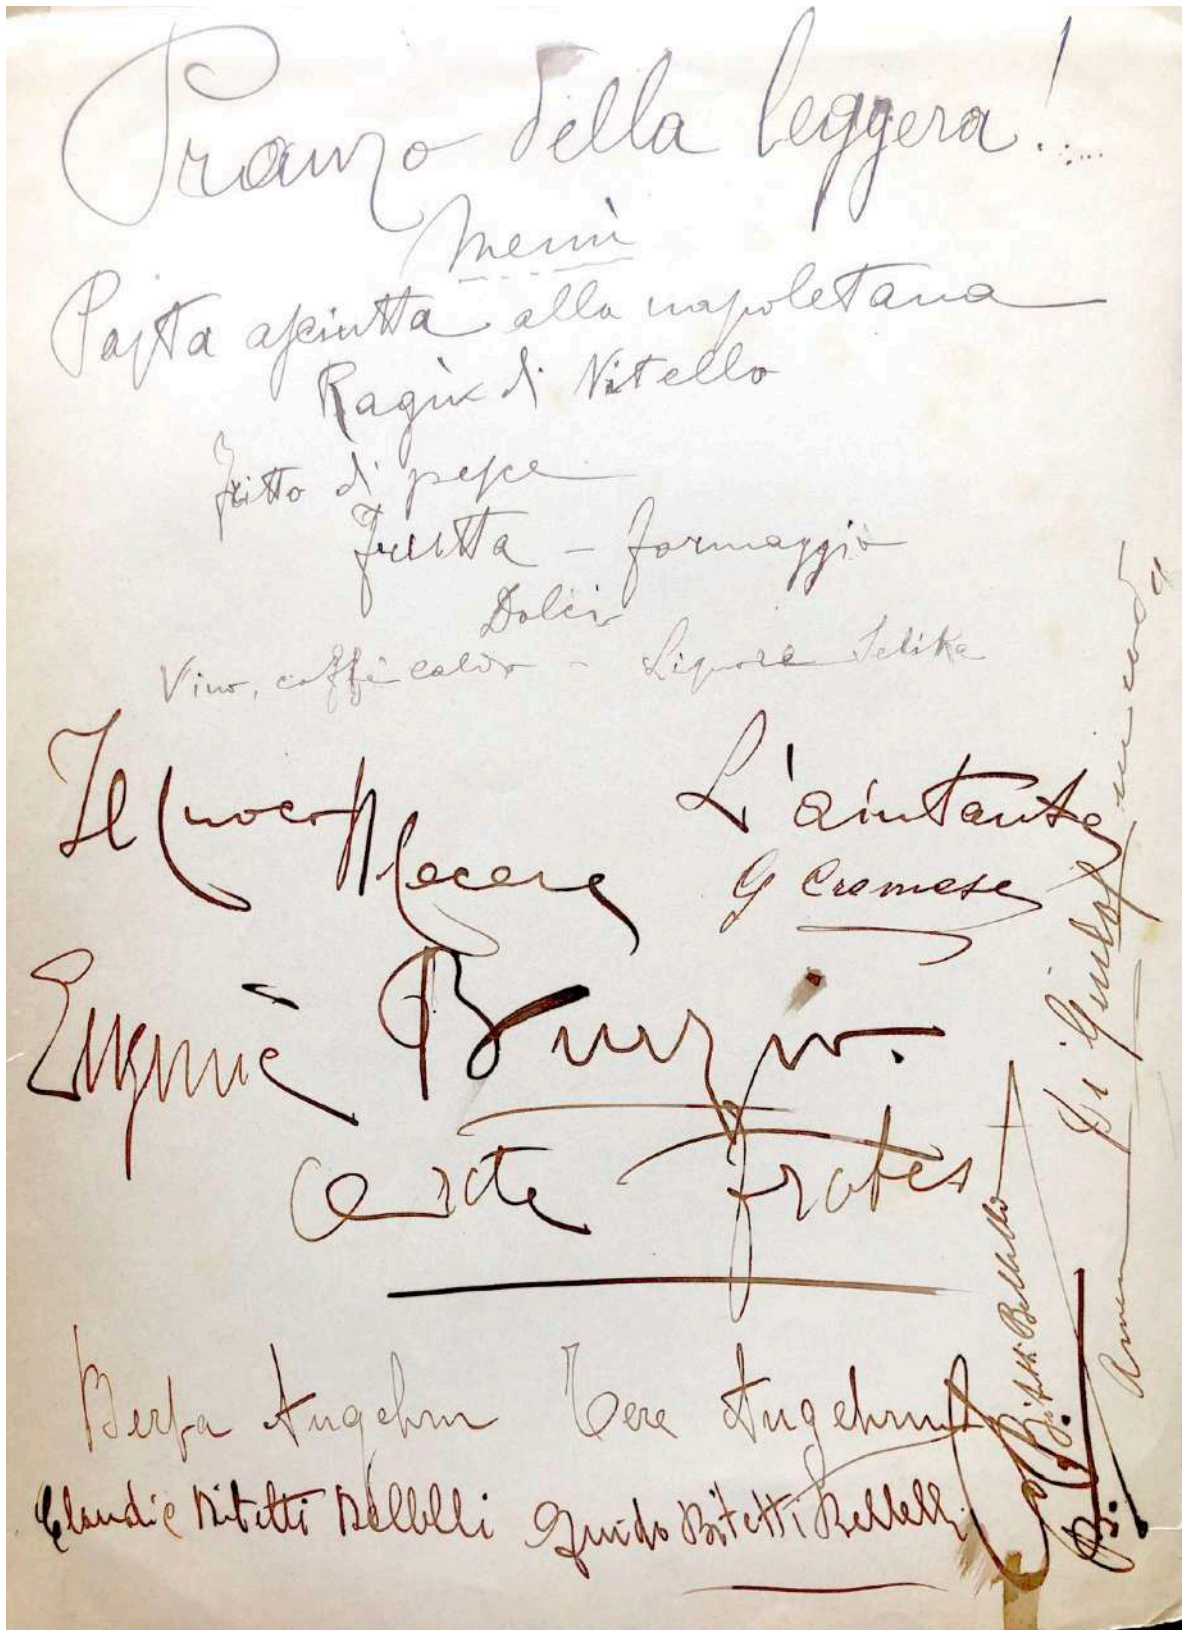 Pranzo della leggera!...
Menù
Pasta asciutta alla napoletana
Ragù di Vitello
fritto di pesce
frutta - formaggio
Dolci
Vino, caffè caldo - Liquore Selika
Il cuoco L'aiutante
G Cramese
Eugenia Burzio.
Arte
Berta Angehrn Tere Angehrn
Claudie Bitetti Bellelli Guido Bitetti Bellelli
Bitetti Bellelli
Di Giulio